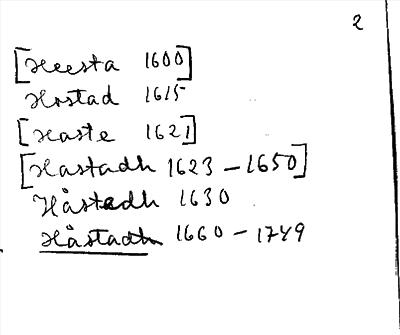 2
[Heesta 1600]
Hostad 1615
[Haste 1621]
[Hastadh 1623-1650]
Håstedh 1630
Håstadh 1660-1749